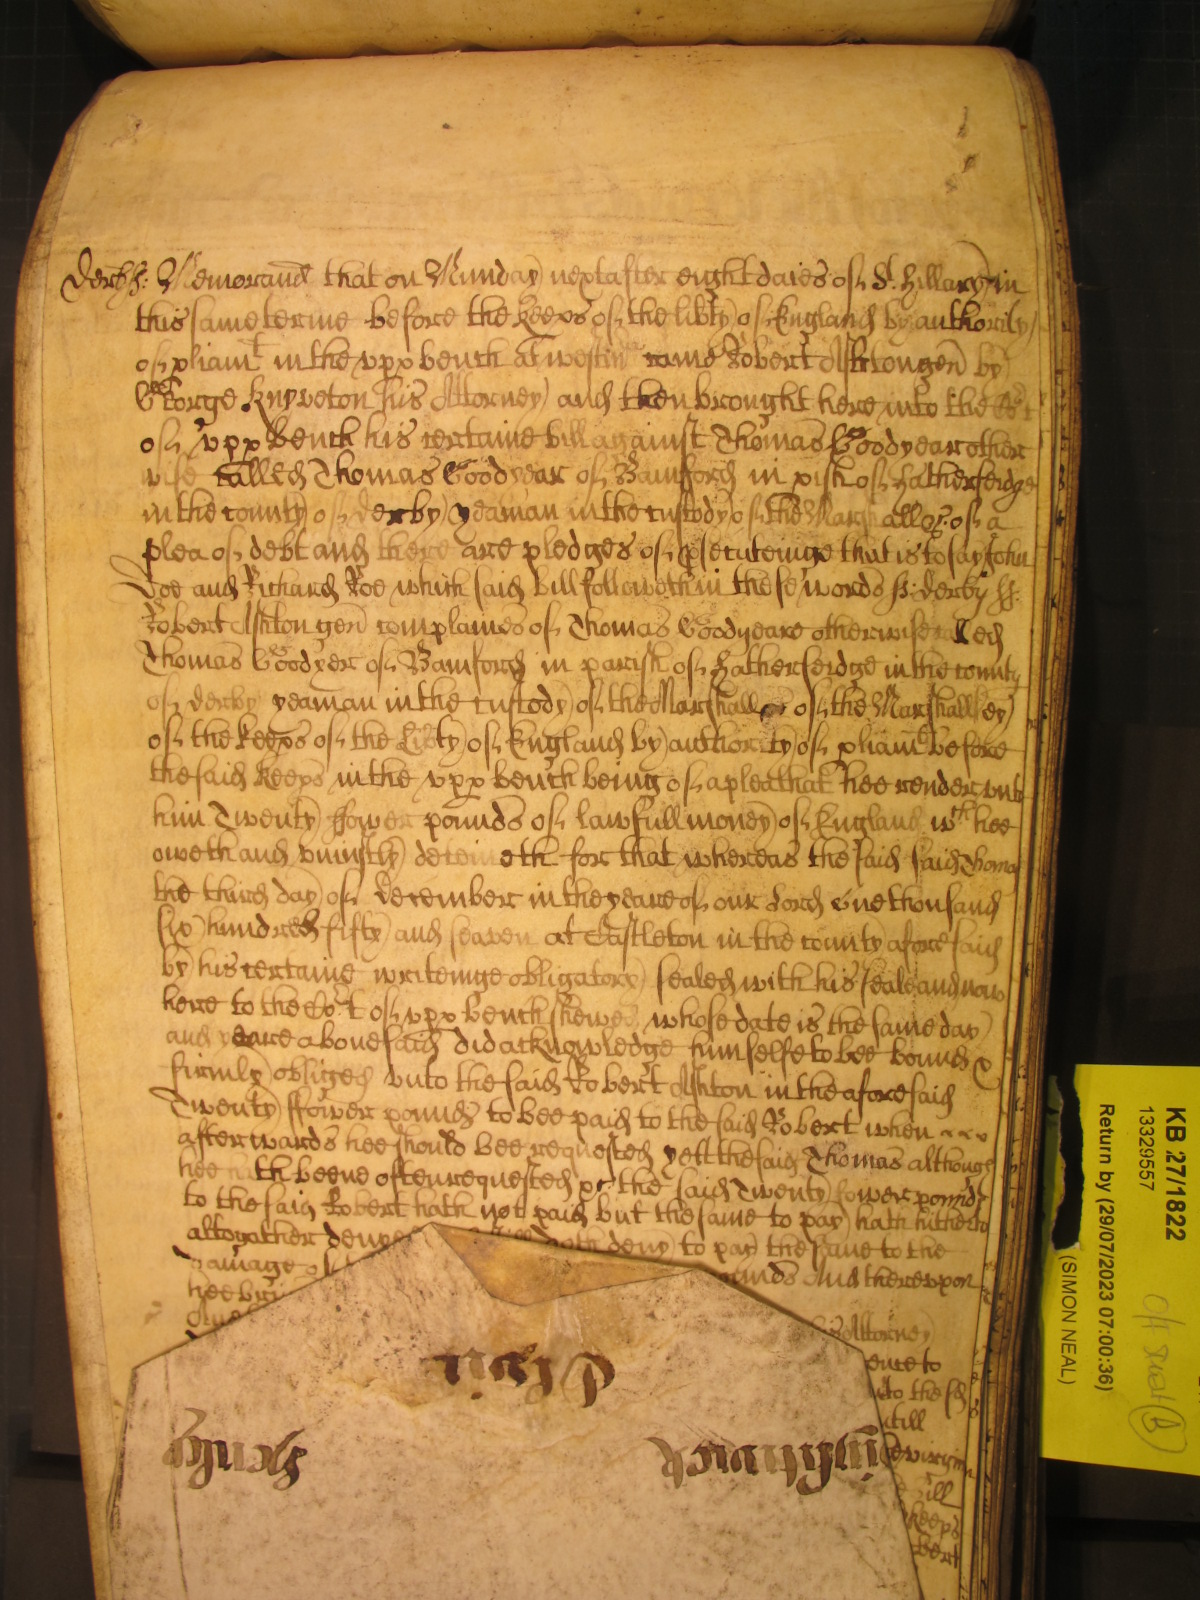 Derb ss: Memorand that on Munday next after eight daies of St. Hillary in
this same terme before the keeps of the libty of England by authority
of pliamt in the upp bench at westm came Robert Ashton gen by
George Knyveton his Attorney and then brought here into the Cort
of upp bench his certaine bill against Thomas Goodyear other
wise called Thomas Goodyear of Bamford in pish of Hathersedge
in the county of derby yeaman in the custody of the Marshall &c of a
plea of debt and there are pledges of psecuteinge that is to say John
Doe and Richard Roe which said bill followeth in these words ss: derby ss:
Robert Ashton gen complaines of Thomas Goodyeare otherwise called
Thomas Goodyer of Bamford in parish of Hathersedge in the county
of derby yeaman in the custody of the Marshall of the Marshallsey
of the keeps of the Libty of England by authority of pliamt before
the said keeps in the upp bench being of a plea that hee render unto
him Twenty ffower pounds of lawfull money of England wch hee
oweth and uniustly deteineth for that whereas the said said Thomas
the third day of december in the yeare of our Lord one thousand
six hundred fifty and seaven at Castleton in the county aforesaid
by his certaine writeinge obligatory sealed with his seale and now
here to the Cort of upp bench shewed whose date is the same day
and yeare abovesaid did acknowledge himselfe to bee bound &
firmly obliged unto the said Robert Ashton in the aforesaid
Twenty ffower pounds to bee paid to the said Robert when
afterwards hee should bee requested yett the said Thomas although
hee hath beene often requested &c the said Twenty fower pounds
to the said Robert hath not paid but the same to pay hath hitherto
altogather denyed doth deny to pay the same to the
damage of pounds And thereupon
hee bri
his Attorney
ence to
into the sd
untill
bill
keeps
Robert
Clair
Whitwick
Henly
KB 27/1822
13329557
Return by (29/07/2023 07:00:36)
(SIMON NEAL)
B